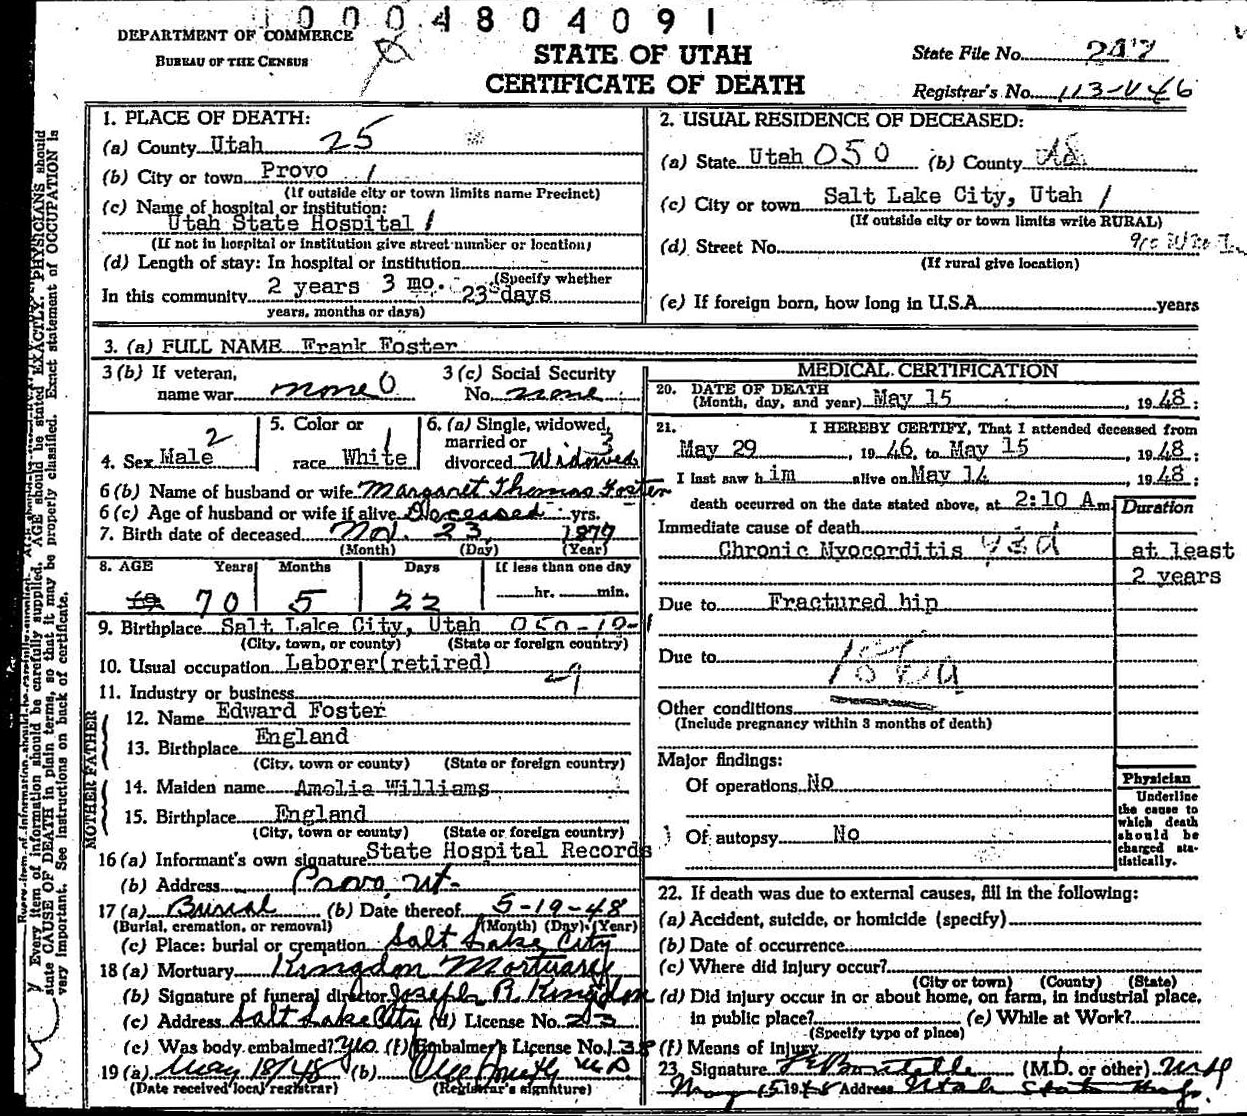 10004804091
DEPARTMENT OF COMMERCE
BUREAU OF THE CENSUS
STATE OF UTAH
CERTIFICATE OF DEATH
State File No. 247
Registrar's No. 113-V46
1. PLACE OF DEATH:
(a) County Utah 25
(b) City or town Provo 1
(If outside city or town limits name Precinct)
(c) Name of hospital or institution:
Utah State Hospital 1
(If not in hospital or institution give street number or location)
(d) Length of stay: In hospital or institution
(Specify whether
In this community 2 years 3 mo. 23 days
years, months or days)
2. USUAL RESIDENCE OF DECEASED:
(a) State Utah 050 (b) County
(c) City or town Salt Lake City, Utah 1
(If outside city or town limits write RURAL)
(d) Street No.
(If rural give location)
(e) If foreign born, how long in U.S.A. years
3. (a) FULL NAME Frank Foster
3 (b) If veteran,
name war none 0
3 (c) Social Security
No. none
4. Sex Male 2
5. Color or
race White 1
6. (a) Single, widowed, 3
married or
divorced Widowed
6 (b) Name of husband or wife Margaret Thomas Foster
6 (c) Age of husband or wife if alive Deceased yrs.
7. Birth date of deceased Nov. 23, 1877
(Month) (Day) (Year)
8. AGE Years Months Days If less than one day
69 70 5 22 hr. min.
9. Birthplace Salt Lake City, Utah 050-19-1
(City, town, or county) (State or foreign country)
10. Usual occupation Laborer(retired)
11. Industry or business
FATHER
12. Name Edward Foster
13. Birthplace England
(City, town or county) (State or foreign country)
MOTHER
14. Maiden name Amelia Williams
15. Birthplace England
(City, town or county) (State or foreign country)
16 (a) Informant's own signature State Hospital Records
(b) Address Provo, Ut.
17 (a) Burial (b) Date thereof 5-19-48
(Burial, cremation, or removal) (Month) (Day) (Year)
(c) Place: burial or cremation Salt Lake City
18 (a) Mortuary Kingdon Mortuary
(b) Signature of funeral director Joseph R. Kingdon
(c) Address Salt Lake City (d) License No. 23
(e) Was body embalmed? Yes (f) Embalmer's License No. 138
19 (a) May 18/48 (b)
(Date received local registrar) (Registrar's signature)
MEDICAL CERTIFICATION
20. DATE OF DEATH
(Month, day, and year) May 15, 1948:
21. I HEREBY CERTIFY, That I attended deceased from
May 29, 1946, to May 15, 1948:
I last saw him alive on May 14, 1948:
death occurred on the date stated above, at 2:10 A m.
Duration
Immediate cause of death
Chronic Myocorditis 93d
at least
2 years
Due to Fractured hip
Due to
Other conditions
(Include pregnancy within 3 months of death)
Major findings:
Of operations No
Of autopsy No
Physician
Underline
the cause to
which death
should be
charged sta-
tistically.
22. If death was due to external causes, fill in the following:
(a) Accident, suicide, or homicide (specify)
(b) Date of occurrence
(c) Where did injury occur?
(City or town) (County) (State)
(d) Did injury occur in or about home, on farm, in industrial place,
in public place? (e) While at Work?
(Specify type of place)
(f) Means of Injury
23. Signature (M.D. or other) M D
May 15 1948 Address Utah State Hosp.
Every item of information should be carefully supplied. AGE should be stated EXACTLY. PHYSICIANS should
state CAUSE OF DEATH in plain terms, so that it may be properly classified. Exact statement of OCCUPATION is
very important. See instructions on back of certificate.